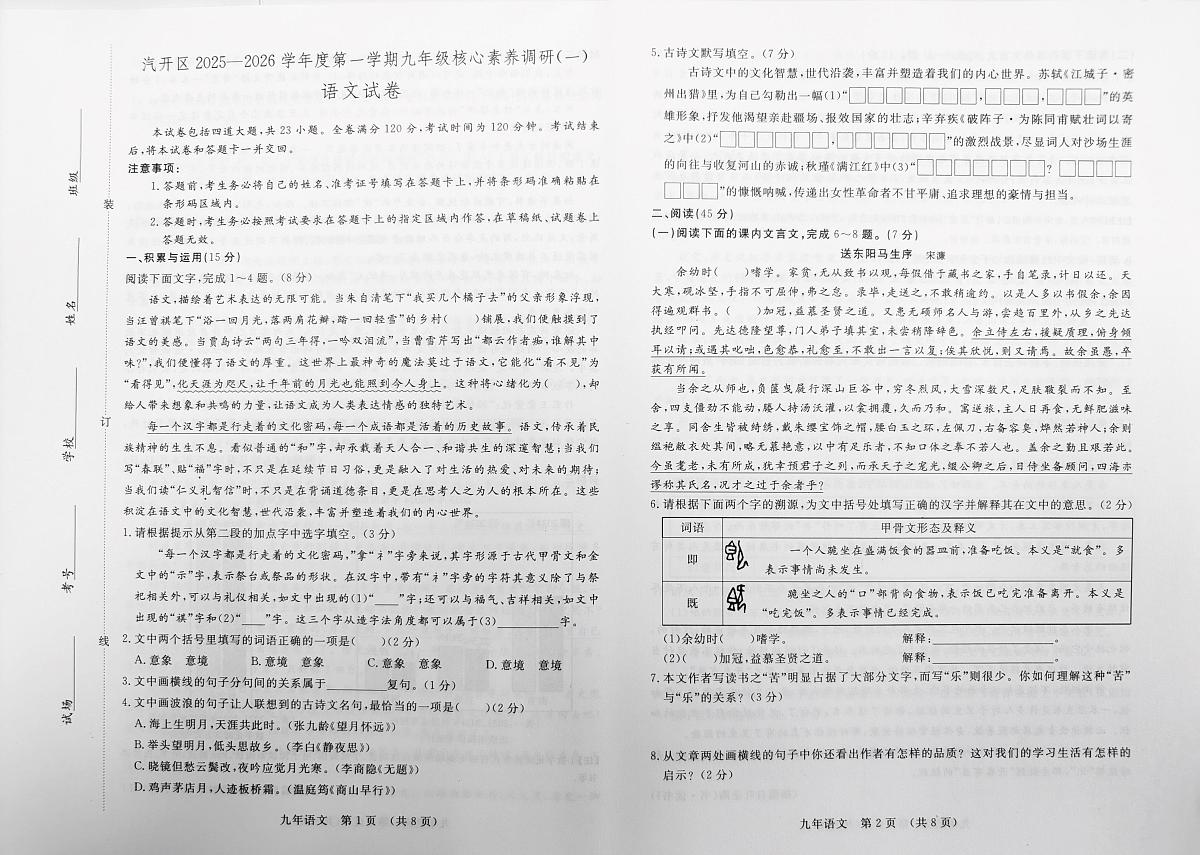 班级
姓名
学校
考号
试场
装
订
线
汽开区 2025—2026 学年度第一学期九年级核心素养调研(一)
语文试卷
本试卷包括四道大题,共 23 小题。全卷满分 120 分,考试时间为 120 分钟。考试结束
后,将本试卷和答题卡一并交回。
注意事项:
1. 答题前,考生务必将自己的姓名、准考证号填写在答题卡上,并将条形码准确粘贴在
条形码区域内。
2. 答题时,考生务必按照考试要求在答题卡上的指定区域内作答,在草稿纸、试题卷上
答题无效。
一、积累与运用(15 分)
阅读下面文字,完成 1～4 题。(8 分)
语文,描绘着艺术表达的无限可能。当朱自清笔下“我买几个橘子去”的父亲形象浮现,
当汪曾祺笔下“浴一回月光,落两肩花瓣,踏一回轻雪”的乡村(　　)铺展,我们便触摸到了
语文的美感。当贾岛诗云“两句三年得,一吟双泪流”,当曹雪芹写出“都云作者痴,谁解其中
味?”,我们便懂得了语文的厚重。这世界上最神奇的魔法莫过于语文,它能化“看不见”为
“看得见”,化天涯为咫尺,让千年前的月光也能照到今人身上。这种将心绪化为(　　),却
给人带来想象和共鸣的力量,让语文成为人类表达情感的独特艺术。
每一个汉字都是行走着的文化密码,每一个成语都是活着的历史故事。语文,传承着民
族精神的生生不息。看似普通的“和”字,却承载着天人合一、和谐共生的深邃智慧;当我们
写“春联”、贴“福”字时,不只是在延续节日习俗,更是融入了对生活的热爱、对未来的期待;
当我们读“仁义礼智信”时,不只是在背诵道德条目,更是在思考人之为人的根本所在。这些
积淀在语文中的文化智慧,世代沿袭,丰富并塑造着我们的内心世界。
1. 请根据提示从第二段的加点字中选字填空。(3 分)
“每一个汉字都是行走着的文化密码,”拿“礻”字旁来说,其字形源于古代甲骨文和金
文中的“示”字,表示祭台或祭品的形状。在汉字中,带有“礻”字旁的字符其意义除了与祭
祀相关外,可以与礼仪相关,如文中出现的(1)“____”字;还可以与福气、吉祥相关,如文中
出现的“祺”字和(2)“____”字。这三个字从造字法角度都可以属于(3)__________字。
2. 文中两个括号里填写的词语正确的一项是(　　)(2 分)
A. 意象　意境　　B. 意境　意象　　C. 意象　意象　　D. 意境　意境
3. 文中画横线的句子分句间的关系属于__________复句。(1 分)
4. 文中画波浪的句子让人联想到的古诗文名句,最恰当的一项是(　　)(2 分)
A. 海上生明月,天涯共此时。(张九龄《望月怀远》)
B. 举头望明月,低头思故乡。(李白《静夜思》)
C. 晓镜但愁云鬓改,夜吟应觉月光寒。(李商隐《无题》)
D. 鸡声茅店月,人迹板桥霜。(温庭筠《商山早行》)
九年语文　第 1 页　(共 8 页)
5. 古诗文默写填空。(7 分)
古诗文中的文化智慧,世代沿袭,丰富并塑造着我们的内心世界。苏轼《江城子·密
州出猎》里,为自己勾勒出一幅(1)“□□□□□□□,□□□,□□□”的英
雄形象,抒发他渴望亲赴疆场、报效国家的壮志;辛弃疾《破阵子·为陈同甫赋壮词以寄
之》中(2)“□□□□□□,□□□□□□”的激烈战景,尽显词人对沙场生涯
的向往与收复河山的赤诚;秋瑾《满江红》中(3)“□□□□□□□? □□□□
□□□”的慷慨呐喊,传递出女性革命者不甘平庸、追求理想的豪情与担当。
二、阅读(45 分)
(一)阅读下面的课内文言文,完成 6～8 题。(7 分)
送东阳马生序　宋濂
余幼时(　　)嗜学。家贫,无从致书以观,每假借于藏书之家,手自笔录,计日以还。天
大寒,砚冰坚,手指不可屈伸,弗之怠。录毕,走送之,不敢稍逾约。以是人多以书假余,余因
得遍观群书。(　　)加冠,益慕圣贤之道。又患无硕师名人与游,尝趋百里外,从乡之先达
执经叩问。先达德隆望尊,门人弟子填其室,未尝稍降辞色。余立侍左右,援疑质理,俯身倾
耳以请;或遇其叱咄,色愈恭,礼愈至,不敢出一言以复;俟其欣悦,则又请焉。故余虽愚,卒
获有所闻。
当余之从师也,负箧曳屣行深山巨谷中,穷冬烈风,大雪深数尺,足肤皲裂而不知。至
舍,四支僵劲不能动,媵人持汤沃灌,以衾拥覆,久而乃和。寓逆旅,主人日再食,无鲜肥滋味
之享。同舍生皆被绮绣,戴朱缨宝饰之帽,腰白玉之环,左佩刀,右备容臭,烨然若神人;余则
缊袍敝衣处其间,略无慕艳意,以中有足乐者,不知口体之奉不若人也。盖余之勤且艰若此。
今虽耄老,未有所成,犹幸预君子之列,而承天子之宠光,缀公卿之后,日侍坐备顾问,四海亦
谬称其氏名,况才之过于余者乎?
6. 请根据下面两个字的溯源,为文中括号处填写正确的汉字并解释其在文中的意思。(2 分)
词语　甲骨文形态及释义
即　一个人跪坐在盛满饭食的器皿前,准备吃饭。本义是“就食”。多
表示事情尚未发生。
既　跪坐之人的“口”部背向食物,表示饭已吃完准备离开。本义是
“吃完饭”。多表示事情已经完成。
(1)余幼时(　　)嗜学。　　解释:____________________。
(2)(　　)加冠,益慕圣贤之道。　　解释:____________________。
7. 本文作者写读书之“苦”明显占据了大部分文字,而写“乐”则很少。你如何理解这种“苦”
与“乐”的关系? (3 分)
8. 从文章两处画横线的句子中你还看出作者有怎样的品质? 这对我们的学习生活有怎样的
启示? (2 分)
九年语文　第 2 页　(共 8 页)